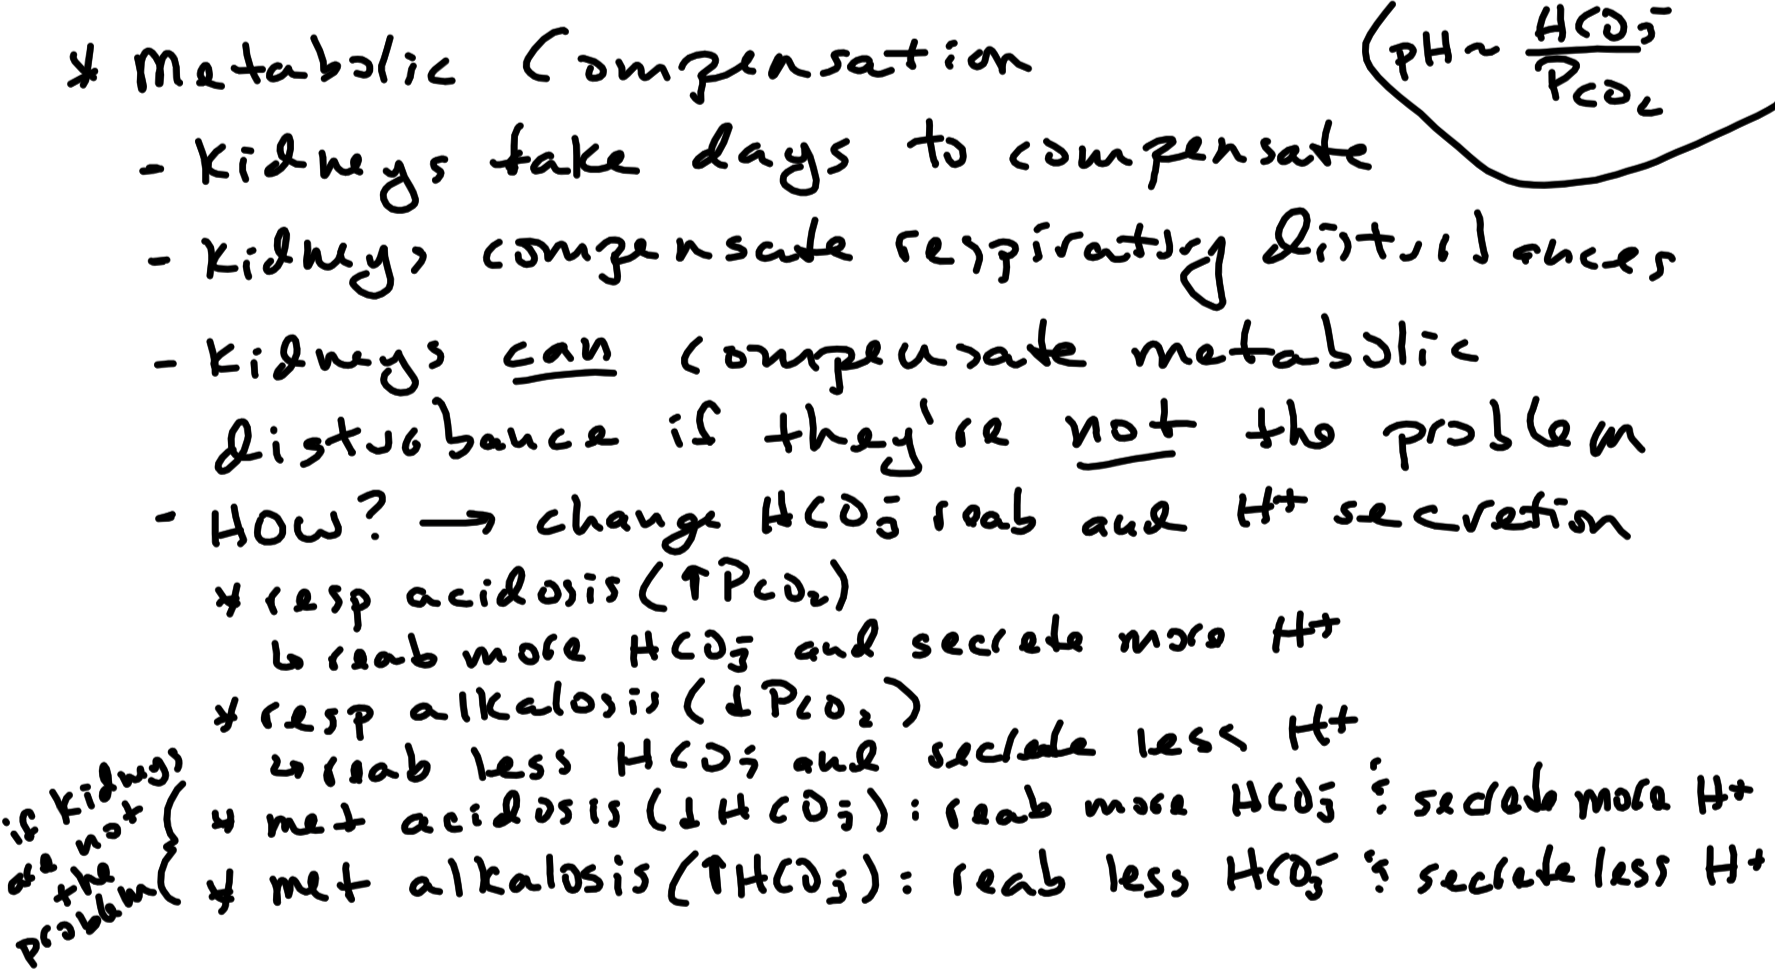 * Metabolic Compensation
(pH ~ HCO3⁻ / PCO2
- Kidneys take days to compensate
- Kidneys compensate respiratory disturbances
- Kidneys can compensate metabolic
disturbance if they're not the problem
- HOW? → change HCO3⁻ reab and H+ secretion
* resp acidosis (↑PCO2)
↳ reab more HCO3⁻ and secrete more H+
* resp alkalosis (↓PCO2)
↳ reab less HCO3⁻ and secrete less H+
if kidneys
are not
the
problem
* met acidosis (↓HCO3⁻): reab more HCO3⁻ & secrete more H+
* met alkalosis (↑HCO3⁻): reab less HCO3⁻ & secrete less H+